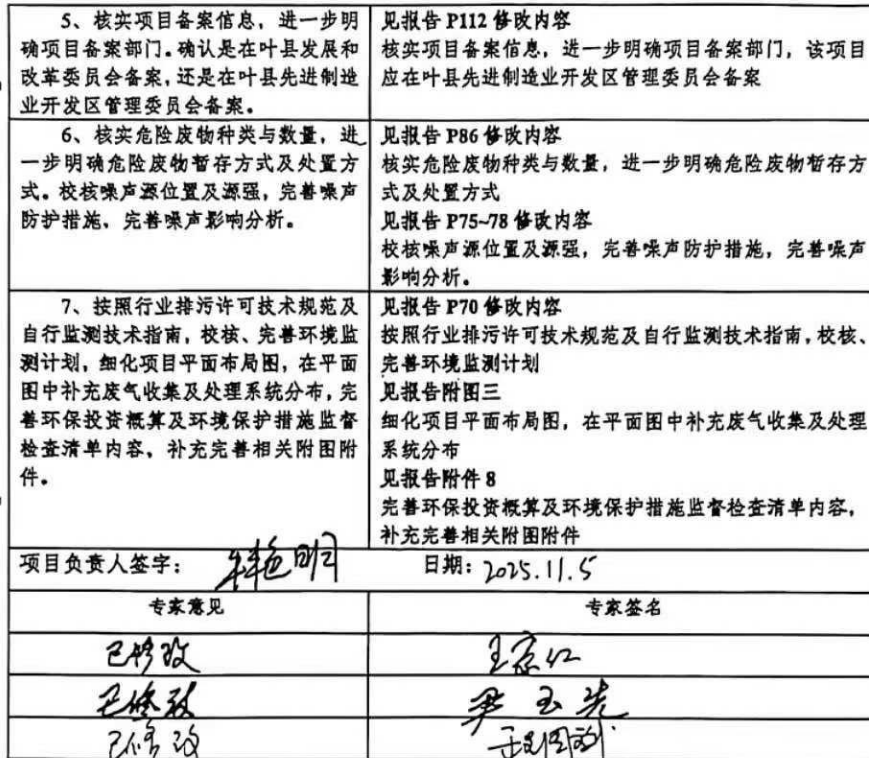 5、核实项目备案信息，进一步明
确项目备案部门。确认是在叶县发展和
改革委员会备案，还是在叶县先进制造
业开发区管理委员会备案。
见报告 P112 修改内容
核实项目备案信息，进一步明确项目备案部门，该项目
应在叶县先进制造业开发区管理委员会备案
6、核实危险废物种类与数量，进
一步明确危险废物暂存方式及处置方
式。校核噪声源位置及源强，完善噪声
防护措施、完善噪声影响分析。
见报告 P86 修改内容
核实危险废物种类与数量，进一步明确危险废物暂存方
式及处置方式
见报告 P75~78 修改内容
校核噪声源位置及源强，完善噪声防护措施，完善噪声
影响分析。
7、按照行业排污许可技术规范及
自行监测技术指南，校核、完善环境监
测计划，细化项目平面布局图，在平面
图中补充废气收集及处理系统分布，完
善环保投资概算及环境保护措施监督
检查清单内容，补充完善相关附图附
件。
见报告 P70 修改内容
按照行业排污许可技术规范及自行监测技术指南，校核、
完善环境监测计划
见报告附图三
细化项目平面布局图，在平面图中补充废气收集及处理
系统分布
见报告附件 8
完善环保投资概算及环境保护措施监督检查清单内容，
补充完善相关附图附件
项目负责人签字： 日期：2025.11.5
专家意见 专家签名
已修改
已修改 尹玉先
已修改